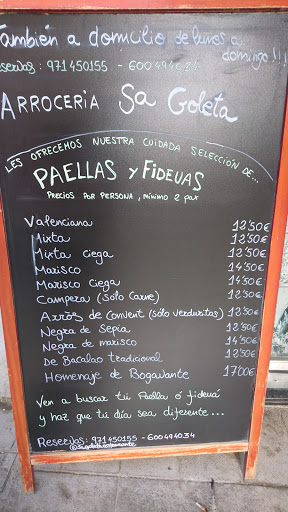 También a domicilio de lunes a domingo!!!
Reservas: 971450155 - 600494034
ARROCERIA Sa Goleta
LES OFRECEMOS NUESTRA CUIDADA SELECCIÓN DE...
PAELLAS y FIDEUAS
PRECIOS POR PERSONA, MÍNIMO 2 pax
Valenciana 12'50€
Mixta 12'50€
Mixta ciega 12'50€
Marisco 14'50€
Marisco Ciega 14'50€
Campera (sólo carne) 12'50€
Arròs de Convent (sólo verduritas) 12'50€
Negra de Sepia 12'50€
Negra de marisco 14'50€
De Bacalao tradicional 12'50€
Homenaje de Bogavante 17'00€
Ven a buscar tú Paella ó fideuá
y haz que tú día sea diferente...
Reservas: 971450155 - 600494034